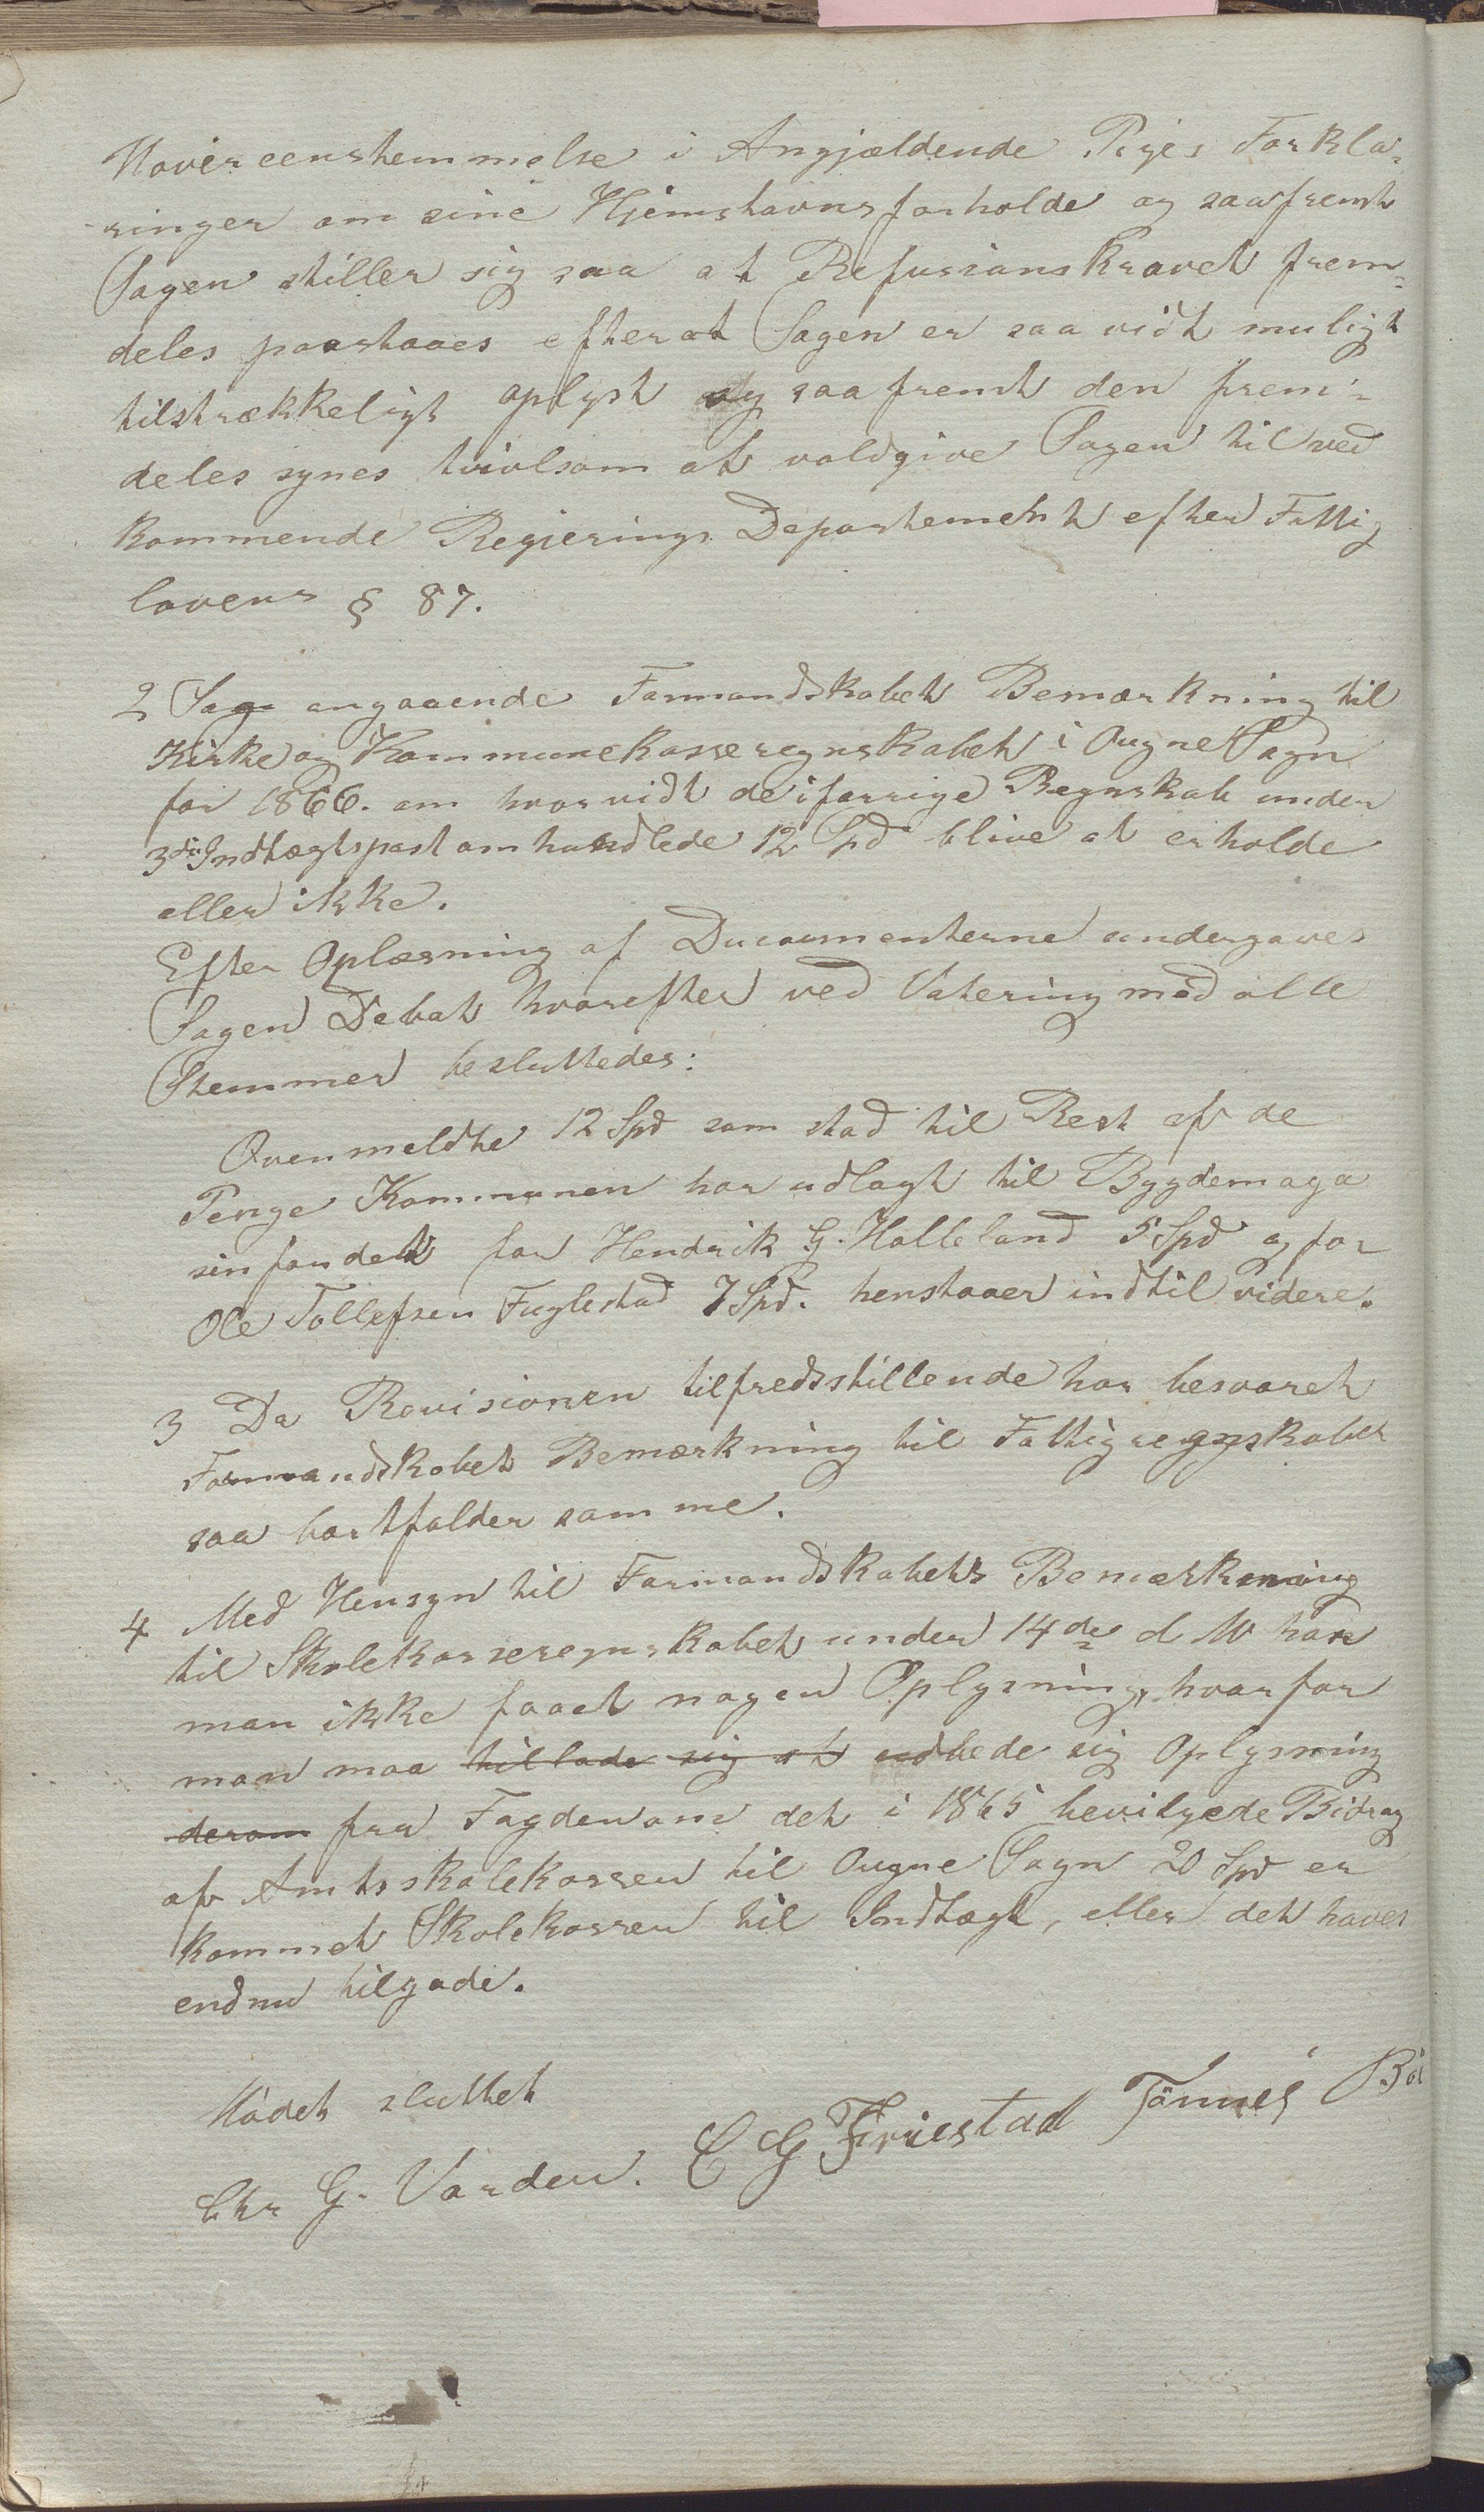 Uovereenstemmelse i Angjældende Piges Forkla-
ringer om sine Hjemstavnsforholde og saafremt
Sagen stiller sig saa at Refusionskravet frem-
deles paastaaes efterat Sagen er saavidt muligt
tilstrækkeligt oplyst og saafremt den frem-
deles synes tvivlsom at voldgive Sagen til ved
kommende Regjerings Departement efter Fattig
lovens § 87.
2 Sag angaaende Formandskabets Bemærkning til
Kirke og Kommunekasseregnskabet i Ougne Sogn
for 1866. om hvorvidt de i forrige Regnskab under
3die Indtægtspost omhandlede 12 Spd blive at erholde
eller ikke.
Efter Oplæsning af Documenterne undergaves
Sagen Debat hvorefter ved Votering med alle
Stemmer besluttedes:
Ovenmeldte 12 Spd som stod til Rest af de
Penge Kommunen har udlagt til Bygdemaga
sinfondet for Hendrik G. Holleland 5 Spd og for
Ole Tollefsen Fuglestad 7 Spd. henstaaer indtil videre.
3 Da Revisionen tilfredsstillende har besvaret
Formandskabets Bemærkning til Fattigregnskabet
saa bortfalder samme.
4 Med Hensyn til Formandskabets Bemærkning
til Skolekasseregnskabet under 14de d M har
man ikke faaet nogen Oplysning, hvorfor
man maa tillade sig at udbede sig Oplysning
derom fra Fogden om det i 1865 bevilgede Bidrag
af Amtsskolekassen til Ougne Sogn 20 Spd er
kommet Skolekassen til Indtægt, eller det haves
endnu tilgode.
Mödet sluttet
Chr G. Varden. C G Friestad Tönnes Bö